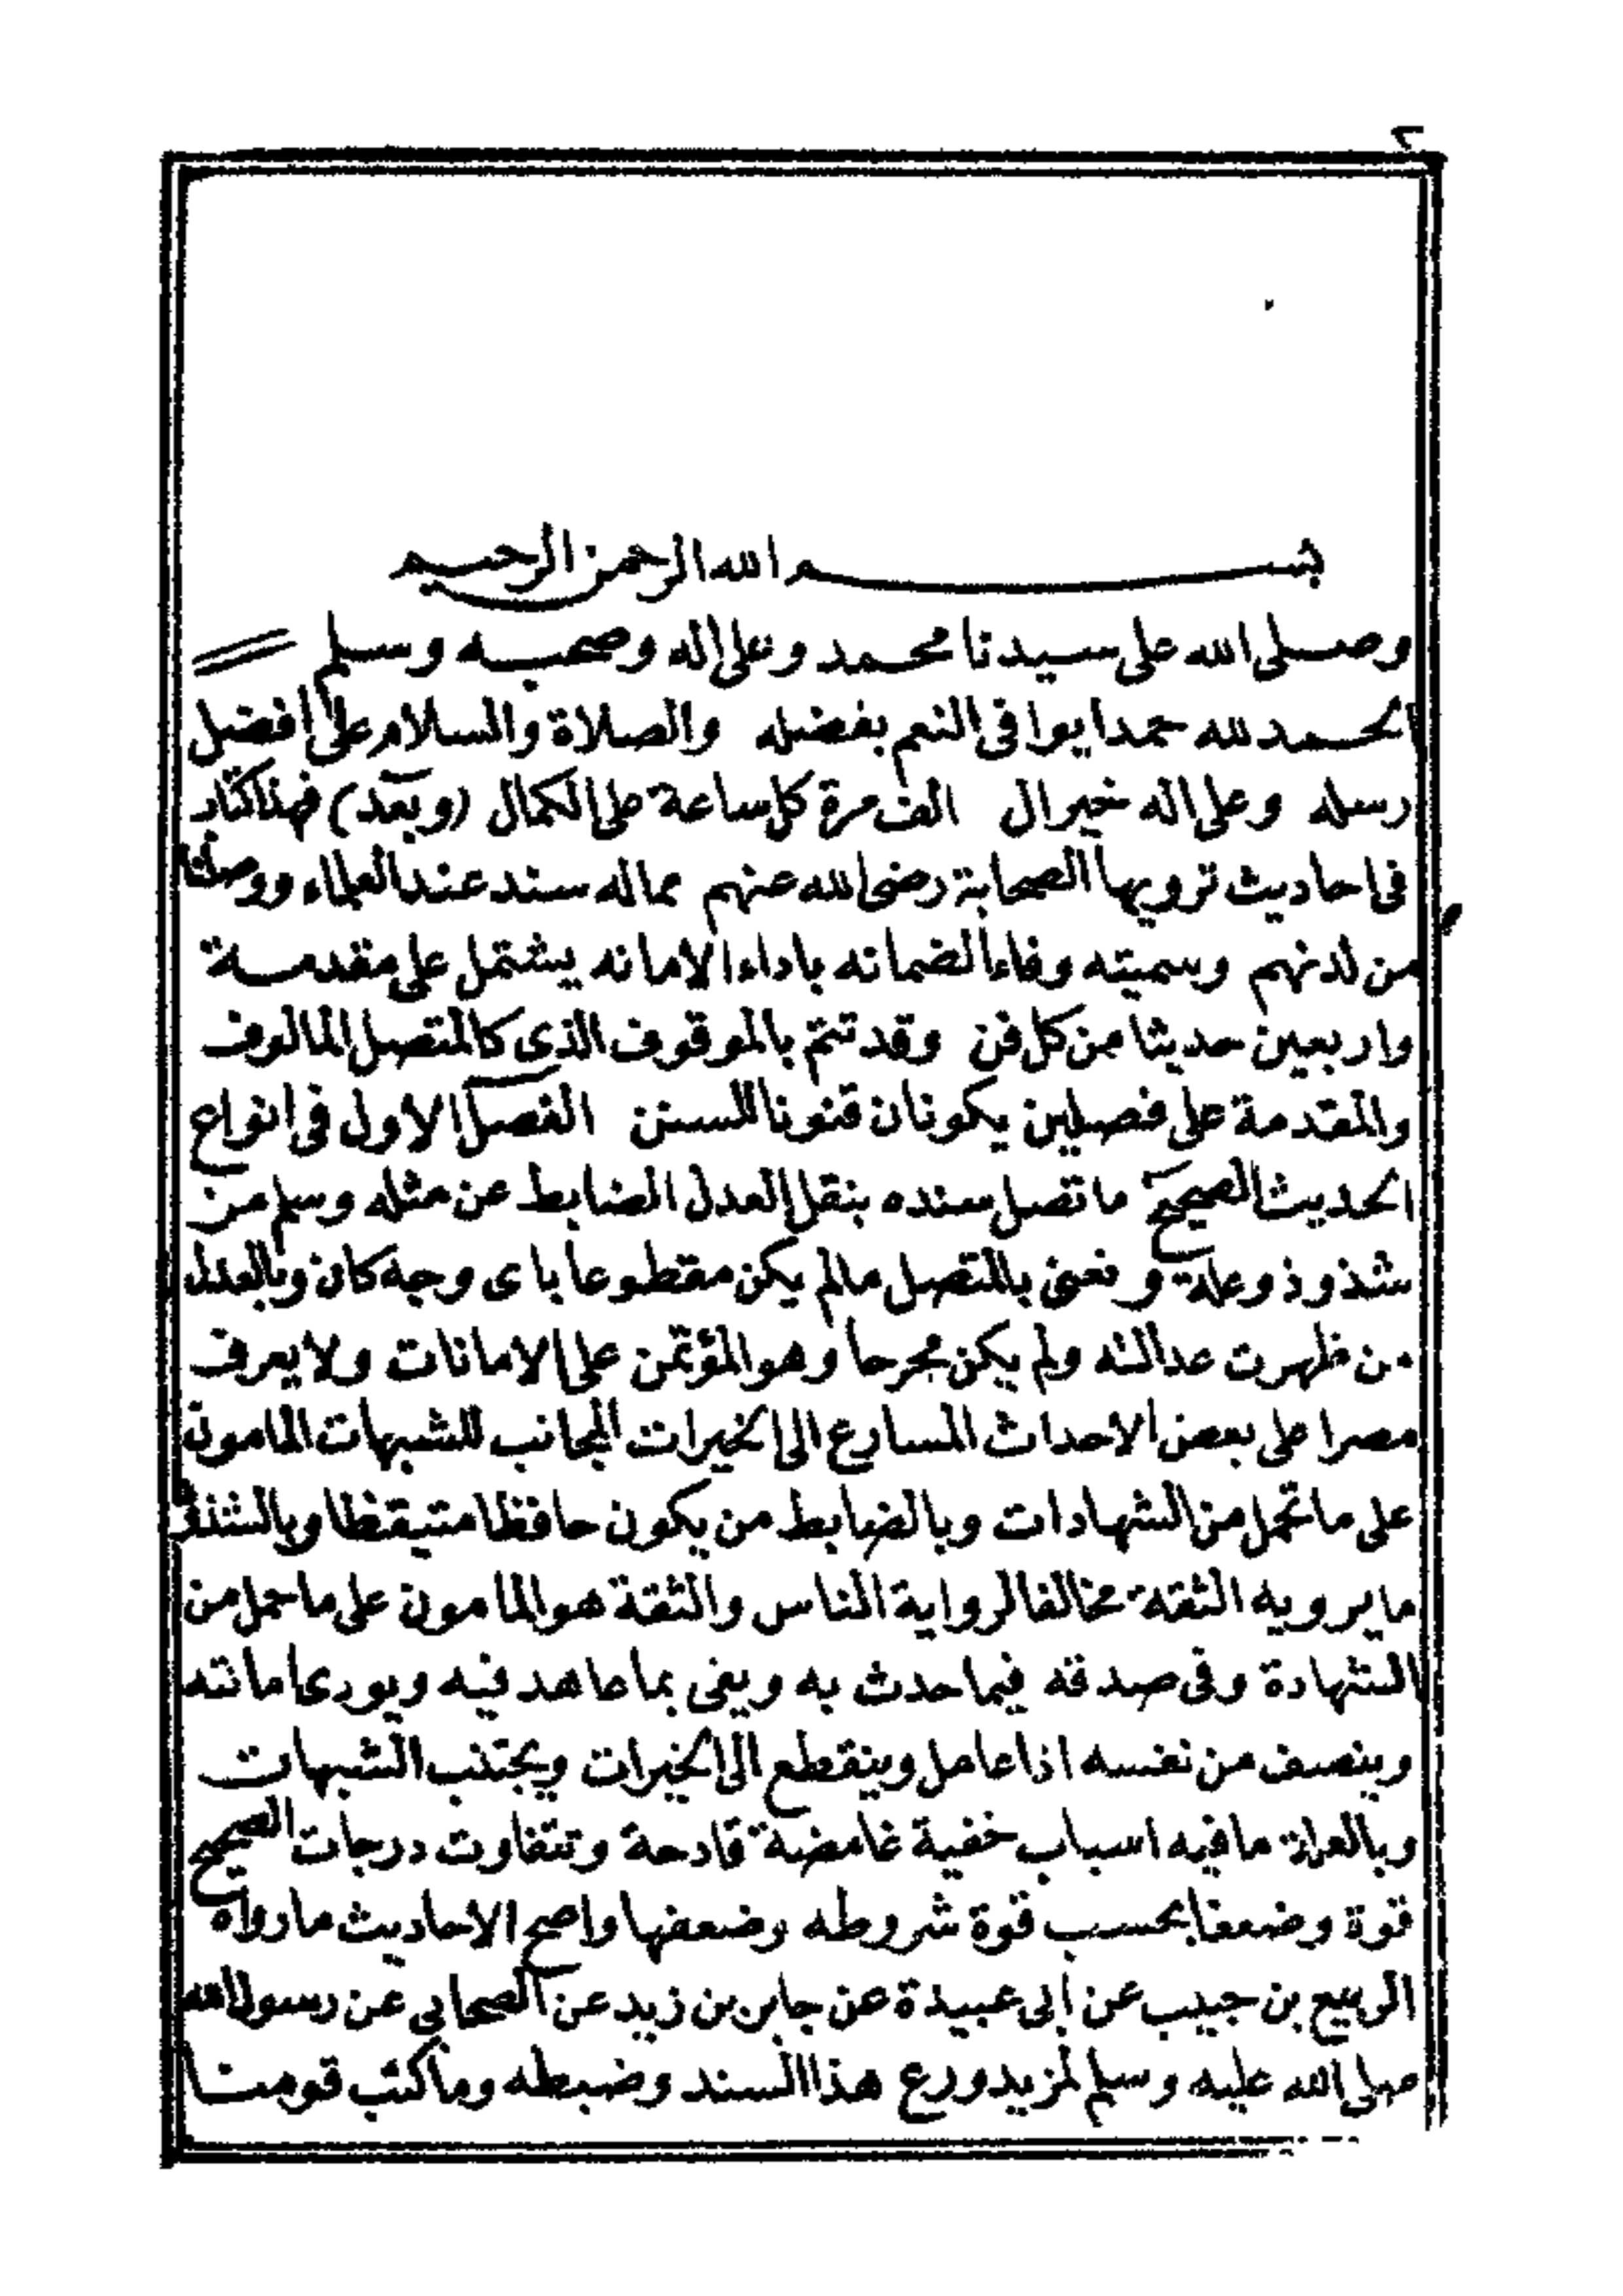 ٢
بسم الله الرحمن الرحيم
وصلى الله على سيدنا محمد وعلى اله وصحبه وسلم
الحمد لله حمدا يوافى النعم بفضله والصلاة والسلام على افضل
رسله وعلى اله خير ال الف مرة كل ساعة على الكمال (وبعد) فهذا كتاب
فى احاديث ترويها الصحابة رضى الله عنهم مما له سند عند العلماء ووصلنا
من لدنهم وسميته وفاء الضمانه باداء الامانه يشتمل على مقدمة
واربعين حديثا من كل فن وقد تتم بالموقوف الذى كالمتصل المالوف
والمقدمة على فصلين يكونان قنونا للسنن الفصل الاول فى انواع
الحديث الصحيح ما تصل سنده بنقل العدل الضابط عن مثله وسلم من
شذوذ وعلة ونعنى بالمتصل مالم يكن مقطوعا باى وجه كان وبالعدل
من ظهرت عدالته ولم يكن مجرحا وهو المؤتمن على الامانات ولا يعرف
مصرا على بعض الاحداث المسارع الى الخيرات المجانب للشبهات المامون
على ما تحمل من الشهادات وبالضابط من يكون حافظا متيقظا وبالشذوذ
ما يرويه الثقة مخالفا لرواية الناس والثقة هو المامون على ما حمل من
الشهادة وفى صدقه فيما حدث به ويفى بما عاهد فيه ويودى امانته
وينصف من نفسه اذا عامل وينقطع الى الخيرات ويجتنب الشبهات
وبالعلة ما فيه اسباب خفية غامضة قادحة وتتفاوت درجات الصحيح
قوة وضعفا بحسب قوة شروطه وضعفها واصح الاحاديث ما رواه
الربيع بن حبيب عن ابى عبيدة عن جابر بن زيد عن الصحابى عن رسول الله
صلى الله عليه وسلم لمزيد ورع هذا السند وضبطه وما كتب قومنا